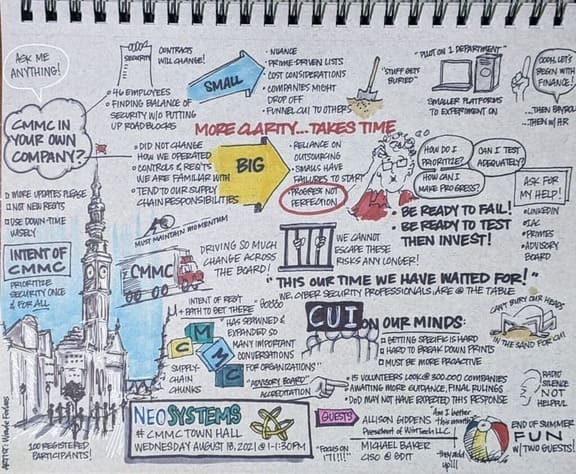 ASK ME
ANYTHING!
SECURITY
CONTRACTS
WILL CHANGE!
• 46 EMPLOYEES
• FINDING BALANCE OF
SECURITY W/O PUTTING
UP ROAD BLOCKS
SMALL
• NUANCE
• PRIME-DRIVEN LISTS
• COST CONSIDERATIONS
• COMPANIES MIGHT
DROP OFF
• FUNNEL CUI TO OTHERS
"STUFF GETS
BURIED"
"PILOT ON 1 DEPARTMENT"
SMALLER PLATFORMS
TO EXPERIMENT ON
OOPH, LET'S
BEGIN WITH
FINANCE!
...THEN PAYROLL
...THEN W/ HR
CMMC IN
YOUR OWN
COMPANY?
MORE CLARITY...TAKES TIME
• DID NOT CHANGE
HOW WE OPERATED
• CONTROLS & REQTS
WE ARE FAMILIAR WITH
• TEND TO OUR SUPPLY
CHAIN RESPONSIBILITIES
BIG
• RELIANCE ON
OUTSOURCING
• SMALLS HAVE
FAILURES TO START
• PROGRESS NOT
PERFECTION
HOW DO I
PRIORITIZE?
CAN I TEST
ADEQUATELY?
HOW CAN I
MAKE PROGRESS?
• BE READY TO FAIL!
• BE READY TO TEST
THEN INVEST!
ASK FOR
MY HELP!
• LINKEDIN
• IAC
• PRIMES
• ADVISORY
BOARD
MORE UPDATES PLEASE
NOT NEW REQTS
USE DOWN-TIME
WISELY
INTENT OF
CMMC
PRIORITIZE
SECURITY ONCE
& FOR ALL
MUST MAINTAIN MOMENTUM
CMMC
DRIVING SO MUCH
CHANGE ACROSS
THE BOARD!
WE CANNOT
ESCAPE THESE
RISKS ANY LONGER!
"THIS OUR TIME WE HAVE WAITED FOR!"
WE, CYBER SECURITY PROFESSIONALS, ARE @ THE TABLE
INTENT OF REQT
"PATH TO GET THERE"
"HAS SPAWNED &
EXPANDED SO
MANY IMPORTANT
CONVERSATIONS
FOR ORGANIZATIONS"
C
M
M
C
SUPPLY
CHAIN
CHUNKS
CUI ON OUR MINDS:
GETTING SPECIFIC IS HARD
HARD TO BREAK DOWN PRINTS
MUST BE MORE PROACTIVE
CAN'T BURY OUR HEADS
IN THE SAND FOR CUI
"ADVISORY BOARD"
ACCREDITATION
• 15 VOLUNTEERS LOOK @ 300,000 COMPANIES
AWAITING MORE GUIDANCE, FINAL RULINGS
• DOD MAY NOT HAVE EXPECTED THIS RESPONSE
RADIO
SILENCE
NOT
HELPFUL
NEOSYSTEMS
# CMMC TOWN HALL
WEDNESDAY AUGUST 18, 2021 @ 1-1:30PM
GUESTS
ALLISON GIDDENS
President of WinTech LLC
MICHAEL BAKER
CISO @ GDIT
"FOCUS ON
"1"!!!"
they add
up!!
END OF SUMMER
FUN
W/ TWO GUESTS!
100 REGISTERED
PARTICIPANTS!